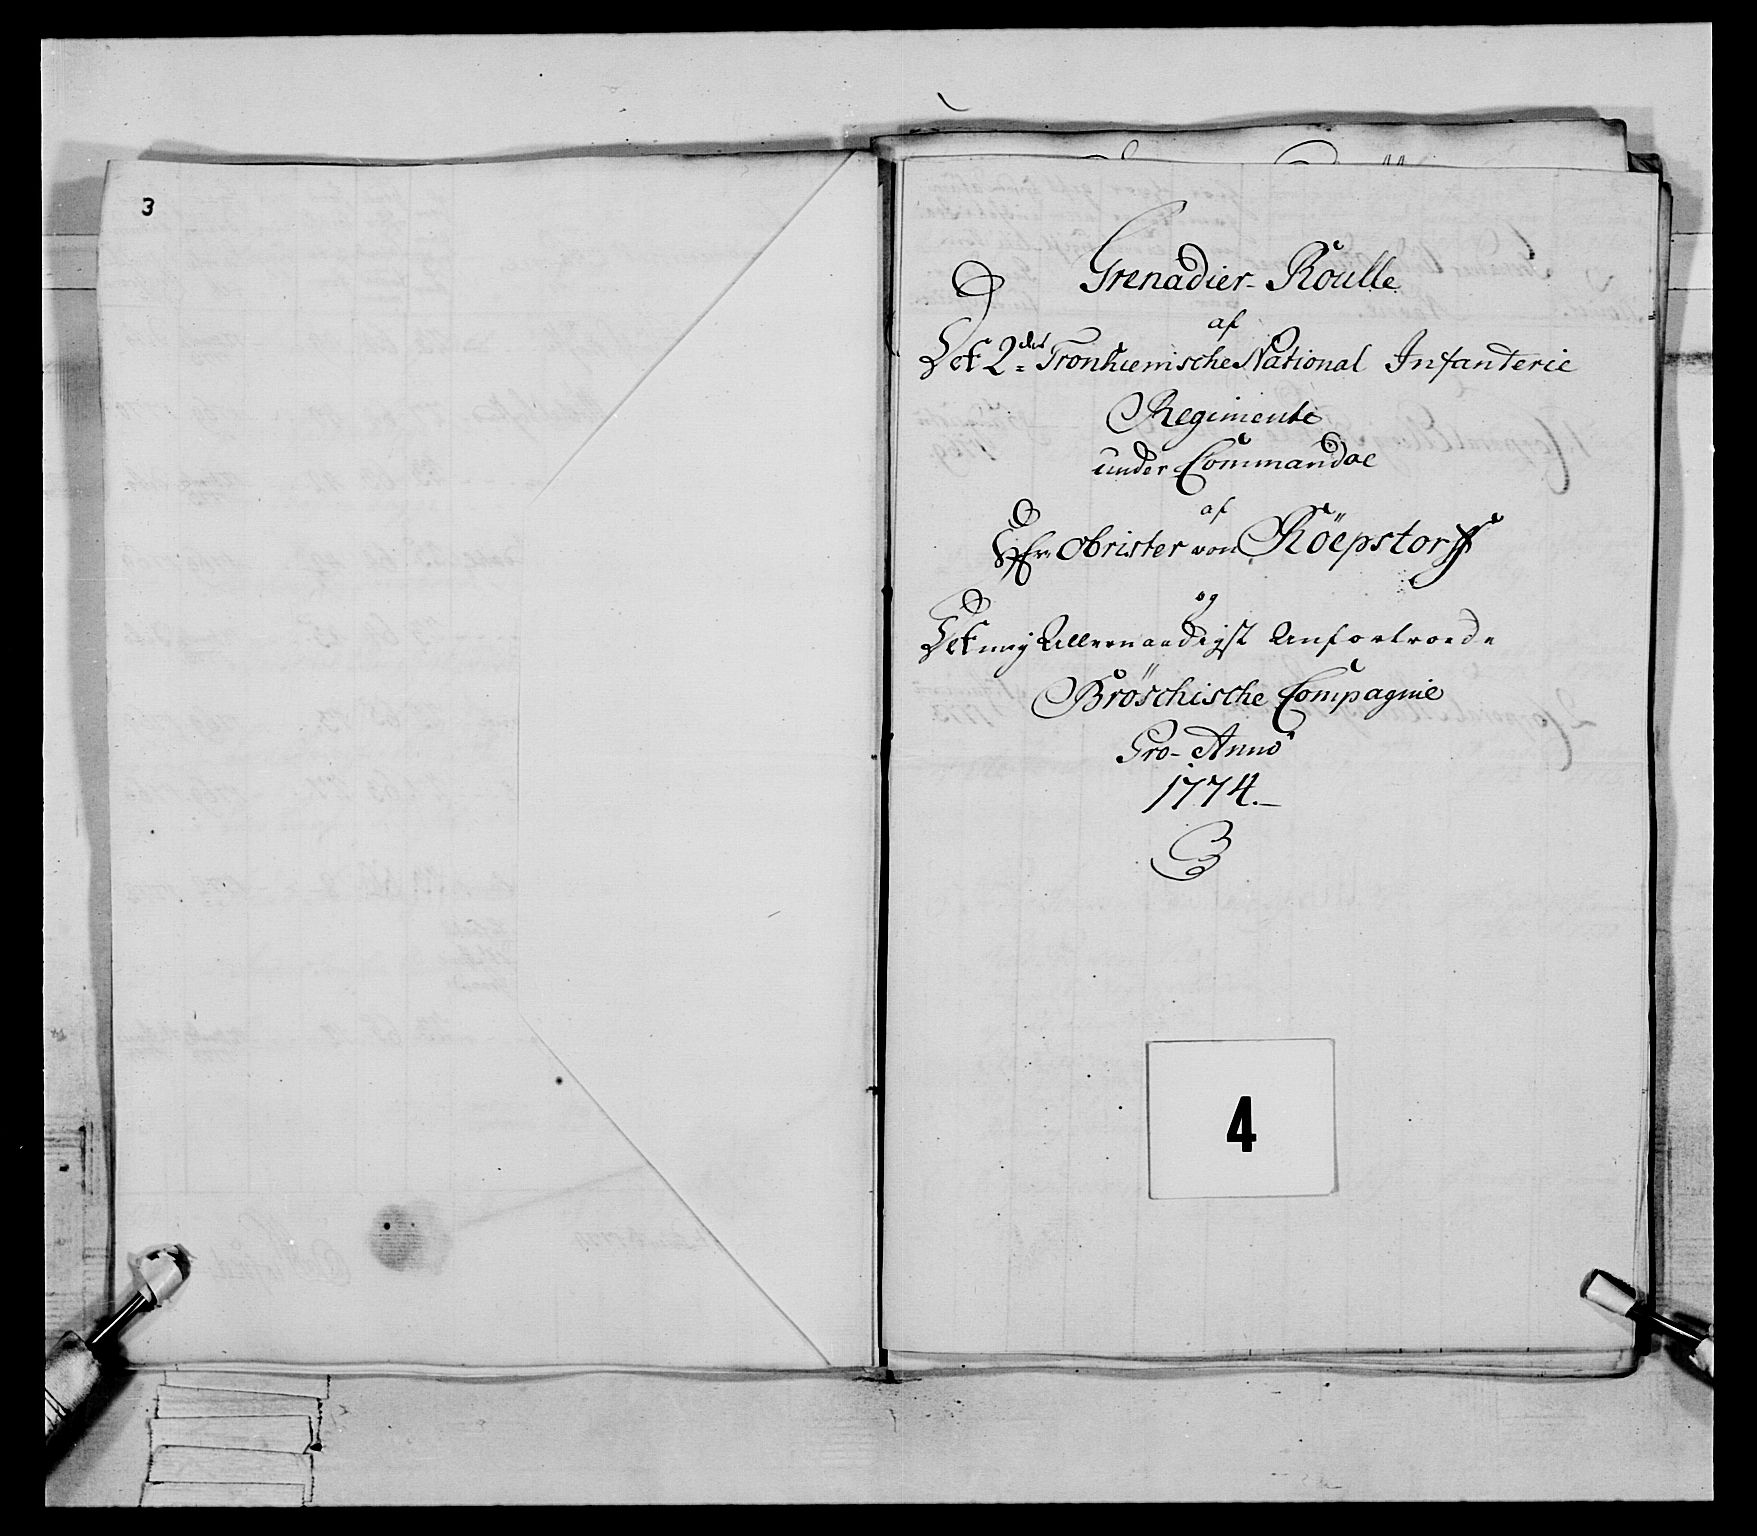 3
Grenadier-Roulle
af
Det 2det Tronhiemische National Infanterie
Regimente
under Commandoe
af
Hr Obrister von Röepstorff
og
Det mig Allernaadigst Anfortroede
Bröschische Compagnie
Pro Anno
1774.
4